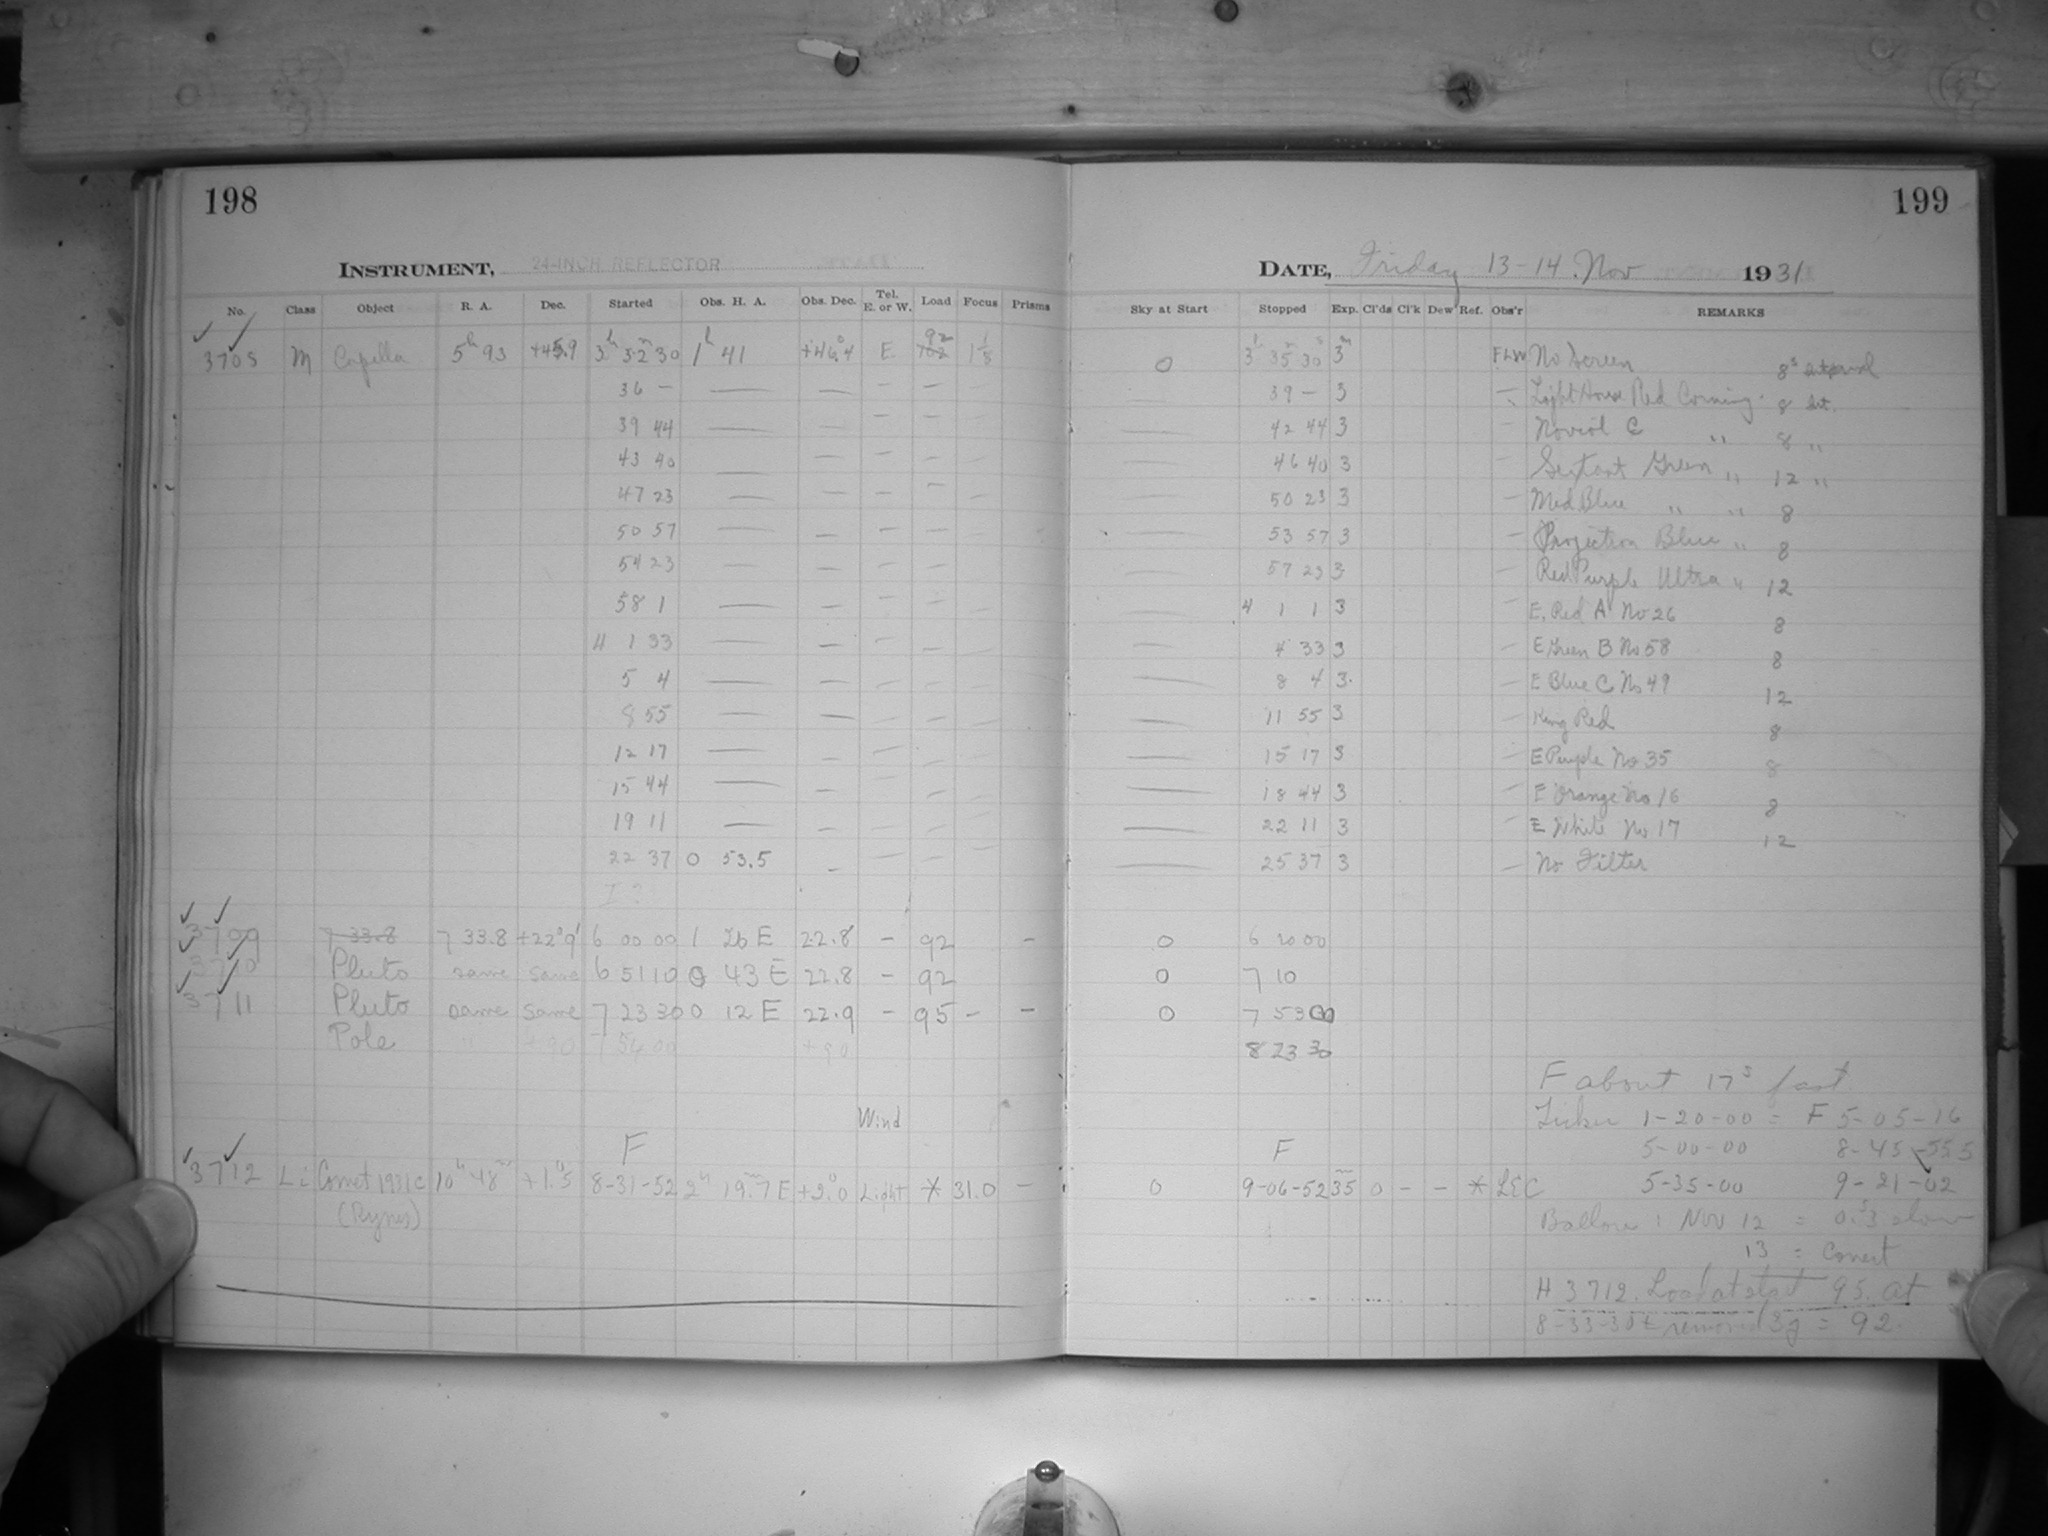 198
199
INSTRUMENT, 24-INCH REFLECTOR
DATE, Friday 13-14 Nov 1931
No. Class Object R. A. Dec. Started Obs. H. A. Obs. Dec. Tel. E. or W. Load Focus Prisms Sky at Start Stopped Exp. Cl'ds Cl'k Dew Ref. Obs'r REMARKS
3708 M Capella 5h 93 +45.9 3h 32m 30 1h 41 +46.4 E 92 102 1 1/8 0 3h 35m 30s 3m FLW No Screen 8s
36 — — — — — — 39 — 3 — Light House Red Corning 8 Int.
39 44 — — — — — 42 44 3 — Noviol C " 8 "
43 40 — — — — — 46 40 3 — Sextant Green " 12 "
47 23 — — — — — — 50 23 3 — Med Blue " " 8
50 57 — — — — — — 53 57 3 — Projection Blue " 8
54 23 — — — — — — 57 23 3 — Red Purple Ultra " 12
58 1 — — — — — — 4 1 1 3 — E. Red A No 26 8
4 1 33 — — — — — — 4 33 3 — E Green B No 58 8
5 4 — — — — — — 8 4 3 — E Blue C No 49 12
8 55 — — — — — — 11 55 3 — Red 8
12 17 — — — — — — 15 17 3 — E Purple No 35 8
15 44 — — — — — — 18 44 3 — E Orange No 16 8
19 11 — — — — — — 22 11 3 — E White No 17 12
22 37 0 53.5 — — — — — 25 37 3 — No Filter
3709 7 33.8 7 33.8 +22°9' 6 00 00 1 26 E 22.8 — 92 — 0 6 20 00
3710 Pluto same same 6 51 10 0 43 E 22.8 — 92 0 7 10
3711 Pluto same same 7 23 30 0 12 E 22.9 — 95 — — 0 7 53 00
Pole " +90 7 54 00 +90 8 23 30
F about 17s fast
Wind
Ticker 1-20-00 = F 5-05-16
F F 5-00-00 8-45-55.5
3712 Li Comet 1931c 10h 48m +1°.5 8-31-52 2h 19.m7 E +2°.0 Light * 31.0 — 0 9-06-52 35m 0 - - * LEC 5-35-00 9-21-02
(Ryves)
Nov 12 = 0.s3 slow
13 = Correct
H 3712. Load at start 95. at
8-33-30± removed 3g = 92.